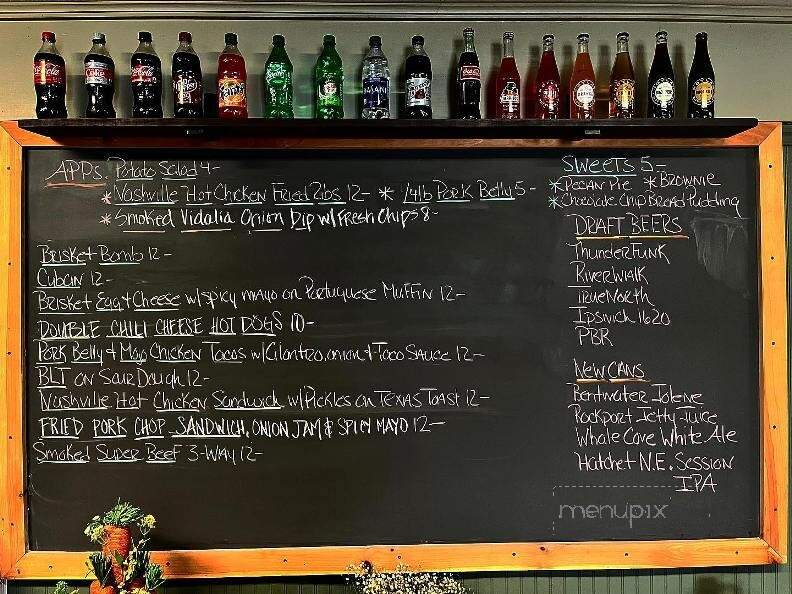 Coca-Cola
DASANI
APPs. Potato Salad 4-
* Nashville Hot Chicken Fried 2lbs. 12- * 1/4lb Pork Belly 5-
* Smoked Vidalia Onion Dip w/Fresh Chips 8-
Brisket Bomb 12-
Cuban 12-
Brisket Egg & Cheese w/spicy mayo on Portuguese Muffin 12-
DOUBLE CHILI CHEESE HOT DOGS 10-
Pork Belly & Mojo Chicken Tacos w/Cilantro, onion & Taco Sauce 12-
BLT on Sour Dough 12-
Nashville Hot Chicken Sandwich w/Pickles on TEXAS TOAST 12-
FRIED PORK CHOP SANDWICH, ONION JAM & SPICY MAYO 12-
Smoked Super Beef 3-Way 12-
SWEETS 5-
* Pecan Pie * Brownie
* Chocolate Chip Bread Pudding
DRAFT BEERS
ThunderFunk
RiverWalk
TrueNorth
Ipswich 1620
PBR
New CANS
Bentwater Jolene
Rockport Jetty Juice
Whale Cove White Ale
Hatchet N.E. Session
IPA
menupix